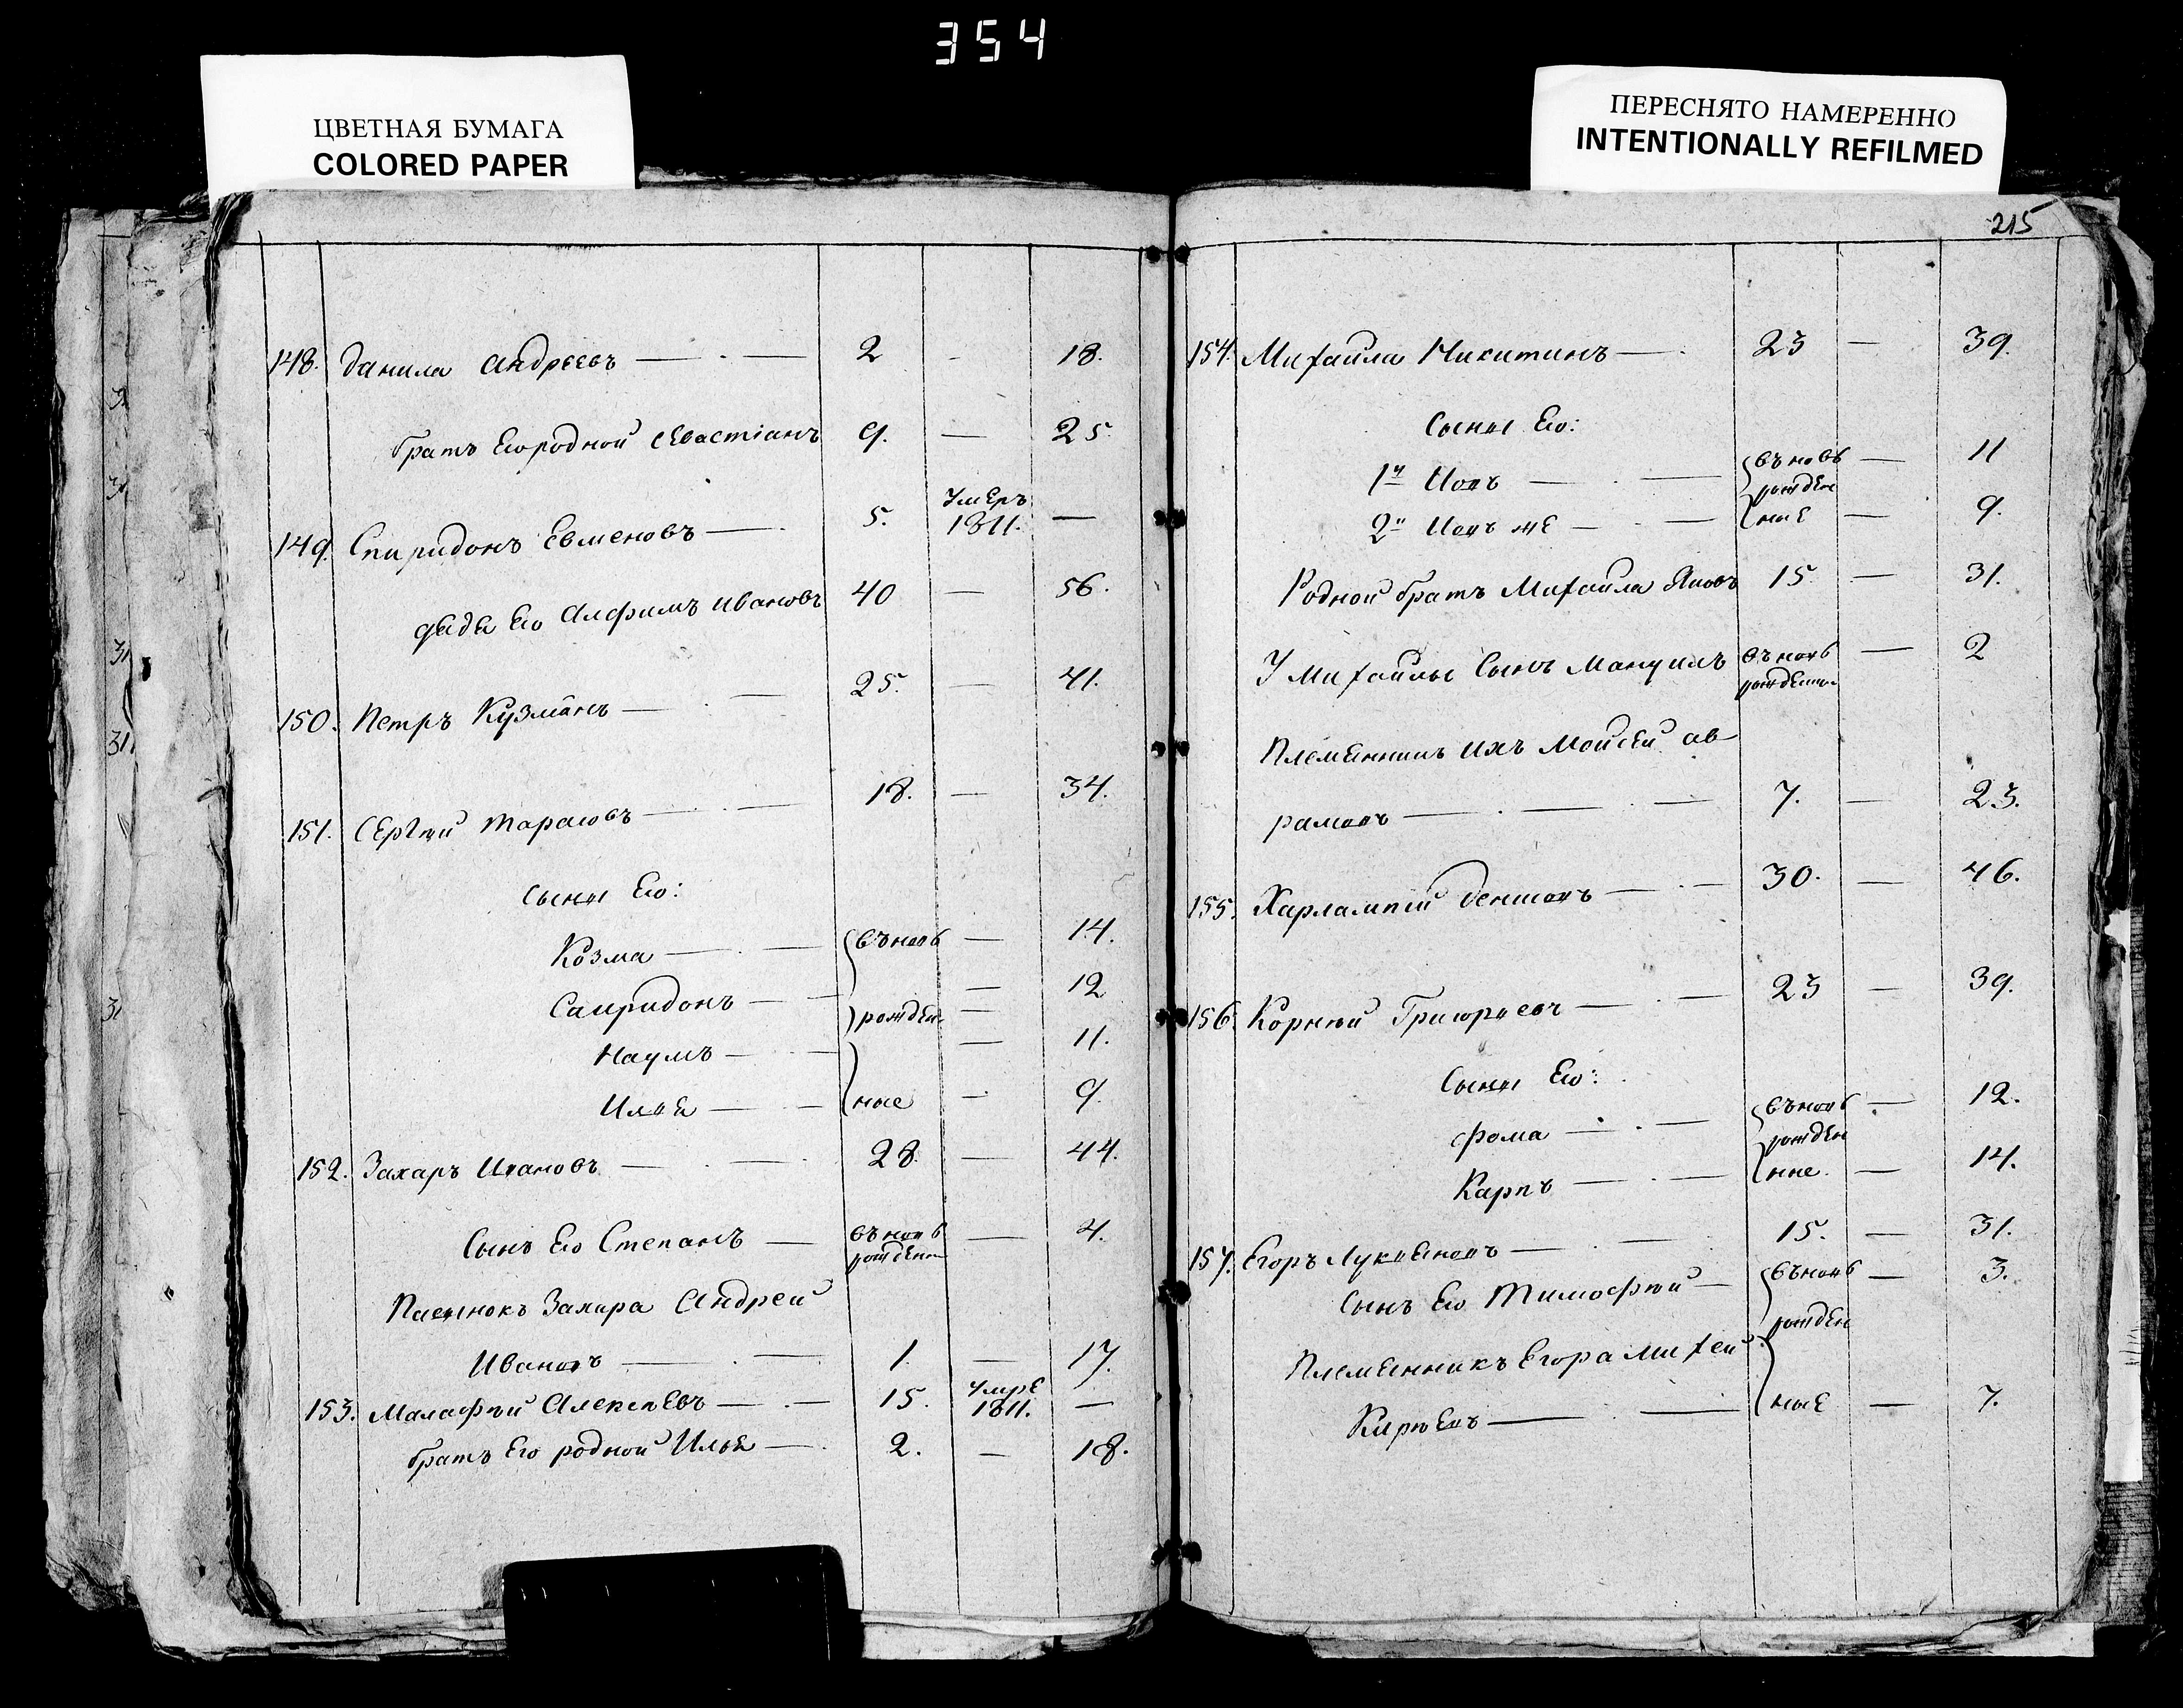 354
ЦВЕТНАЯ БУМАГА
COLORED PAPER
ПЕРЕСНЯТО НАМЕРЕННО
INTENTIONALLY REFILMED
148. Данила Андреевъ — 2 - 18.
братъ Его родной Севастіанъ 9. — 25.
149. Спиридонъ Евменовъ — 5. Умеръ 1811. —
дядя Его Алфимъ Ивановъ 40 — 56.
150. Петръ Кузминъ — 25. — 41.
151. Сергѣй Тарасовъ — 18. — 34.
Сыны Его:
Козма — въновь — 14.
Спиридонъ — — 12
рожден —
Наумъ — — 11.
Илья — ные — 9.
152. Захаръ Ивановъ — 28. — 44.
Сынъ Его Степанъ — въновь рожденн — 4.
Пасынокъ Захара Андрей
Ивановъ — 1. — 17.
153. Малафѣй Алексѣевъ — 15. Умре 1811. —
братъ Его родной Илья — 2. — 18.
215
154. Михайла Никитинъ — 23 — 39.
Сыны Его:
1й Іовъ — въновь — 11
рожден
2й Іовъ же — ные — 9.
Родной братъ Михайла Яковъ 15 — 31.
У Михайлы Сынъ Мануилъ въновь рожденн — 2
Племянникъ ихъ Мойсей Ав
рамовъ — 7. — 23.
155. Харлампій Денисовъ — 30. — 46.
156. Корнѣй Григорьевъ — 23 — 39.
Сыны Его:
Фома — въновь — 12.
рожден
Карпъ — ные. — 14.
157. Егоръ Лукьяновъ — 15. — 31.
Сынъ Его Тимофѣй — въновь — 3.
рожден
Племянникъ Егора Михей
ные — 7.